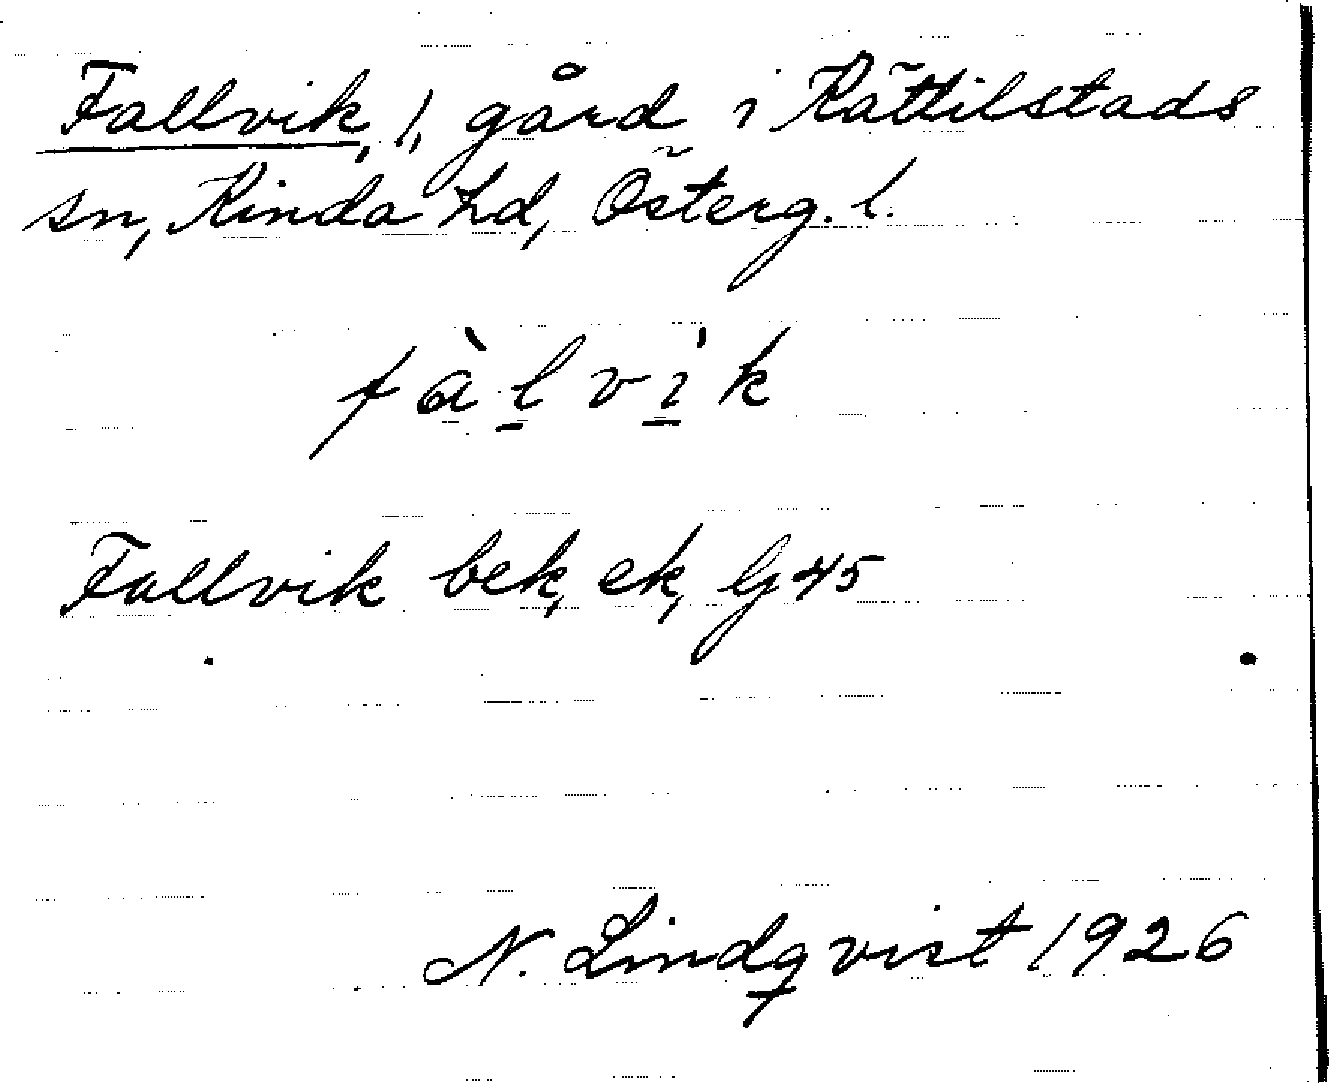 Fallvik, 1, gård i Kättilstads
sn, Kinda hd, Österg. l.
fàlvìk
Fallvik bek, ek, Gj 45
N. Lindqvist 1926